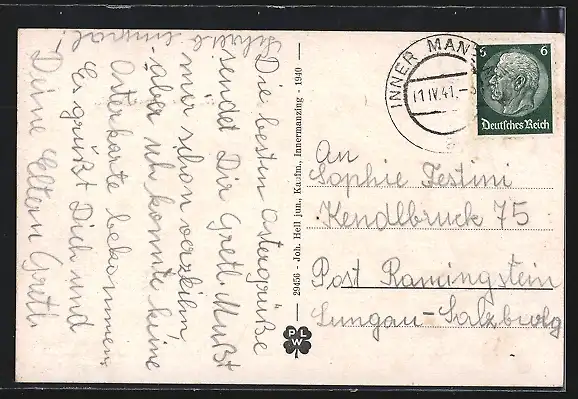 Die besten Ostergrüße
sendet Dir Gretl. Mußt
mir schon verzeihn,
aber ich konnte keine
Osterkarte bekommen.
Es grüßt Dich und
Deine Eltern Gretl.
Schreib einmal!
29456 - Joh. Hell jun., Kaufm., Innermanzing - 1940
PLW
INNER MAN
11.IV.41.-8
a
6 6
Deutsches Reich
An
Sophie Testini
Kendlbruck 75
Post Ramingstein
Lungau-Salzburg